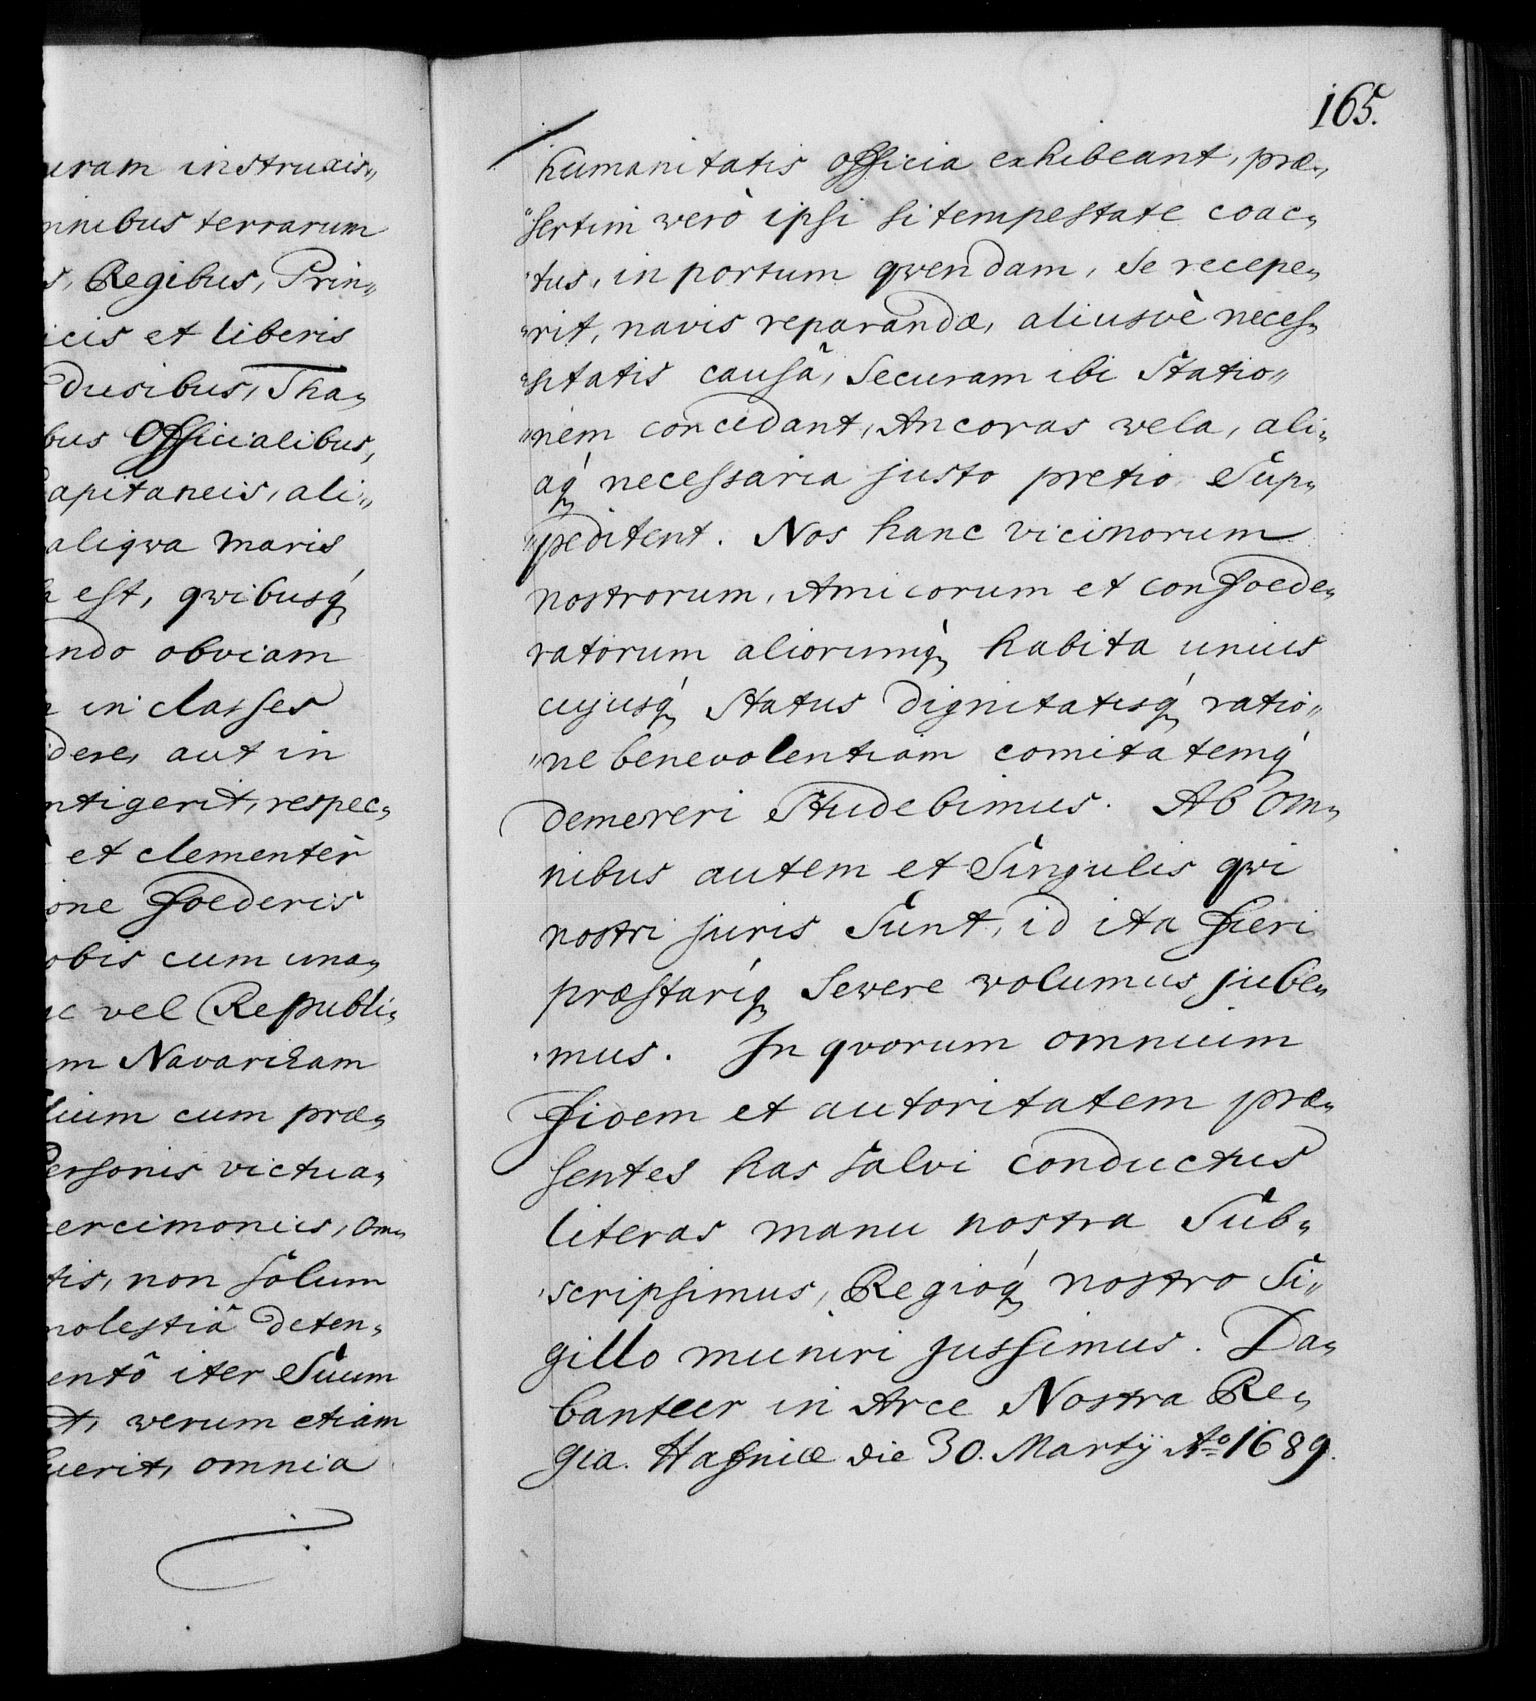 uram instruxis„
nnibus terrarum
s, Regibus, Prin„
icis et liberis
Ducibus, Tha„
bus Officialibus,
apitaneis, ali„
aliqva maris
est, qvibusq́
ando obviam
in classes
dere, aut in
ntigerit, respec„
et clementèr
one foederis
obis cum una„
vel Republi„
m Navarcham
lium cum præ„
Personis victua„
ercimoniis, om„
tis, non solum
molestiâ deten„
entô iter Suum
verum etiam
uerit, omnia
165.
humanitatis officia exhibeant, præ„
„sertim verò ipsi si tempestate coac„
„tus, in portum qvendam, se recepe„
„rit, navis reparandæ, aliusvè neces„
„sitatis causâ, Securam ibi Statio„
„nem concedant, Ancoras vela, ali„
aq́ necessaria justo pretio Sup„
„peditent. Nos hanc vicinorum
nostrorum, Amicorum et confoede„
ratorum aliorumq́ habita unius
cujusq́ Status dignitatisq́ ratio„
„ne benevolentiam comitatemq́
demereri Studebimus. Ab om„
nibus autem et Singulis qvi
nostri juris Sunt, id ita fieri
præstariq́ Severe volumus jube„
„mus. In qvorum omnium
fidem et autoritatem præ„
sentes has salvi conductus
literas manu nostra Sub„
„scripsimus, Regioq́ nostro Si„
gillo muniri jussimus. Da„
banteer in Arce Nostra Re„
gia. Hafniæ die 30. Martij Aº 1689.